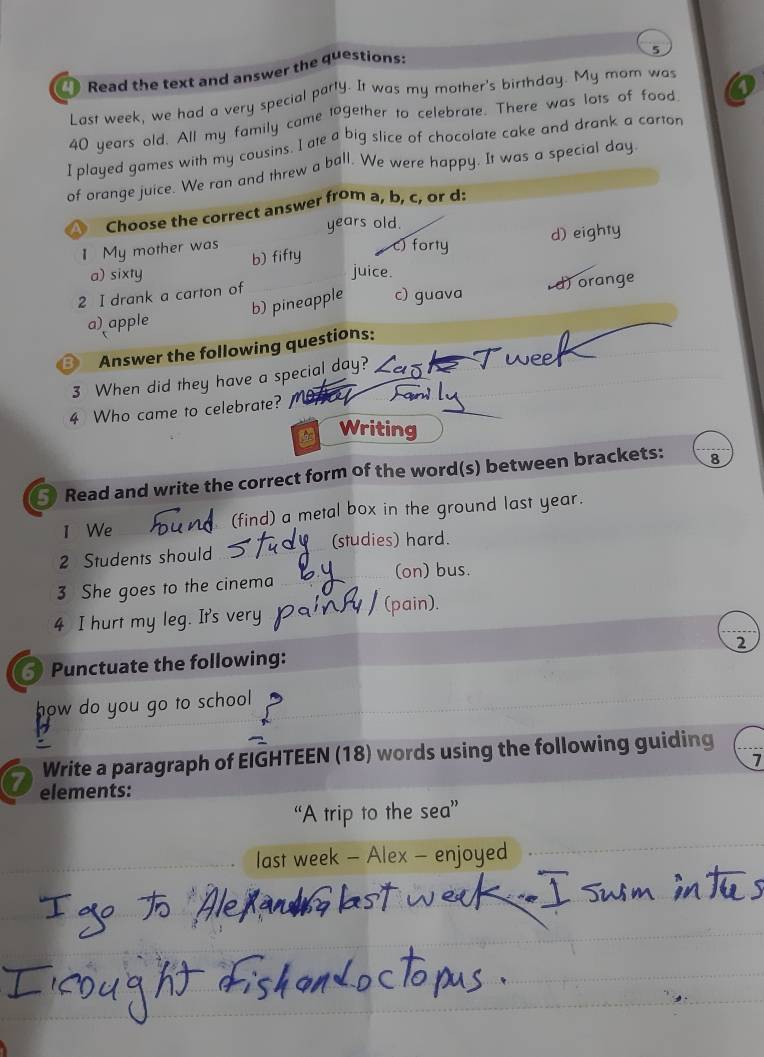 5
4 Read the text and answer the questions:
1
Last week, we had a very special party. It was my mother's birthday. My mom was
40 years old. All my family came together to celebrate. There was lots of food.
I played games with my cousins. I ate a big slice of chocolate cake and drank a carton
of orange juice. We ran and threw a ball. We were happy. It was a special day.
A Choose the correct answer from a, b, c, or d:
1 My mother was years old.
a) sixty b) fifty c) forty d) eighty
2 I drank a carton of juice.
a) apple b) pineapple c) guava d) orange
B Answer the following questions:
3 When did they have a special day? Last week
4 Who came to celebrate? Family
Writing
5 Read and write the correct form of the word(s) between brackets:
8
1 We found (find) a metal box in the ground last year.
2 Students should study (studies) hard.
3 She goes to the cinema by (on) bus.
4 I hurt my leg. It's very painful (pain).
2
6 Punctuate the following:
how do you go to school ?
H
7 Write a paragraph of EIGHTEEN (18) words using the following guiding
elements:
7
“A trip to the sea”
last week – Alex – enjoyed
I go to last week. I swim in the s
I cought fish and octopus.